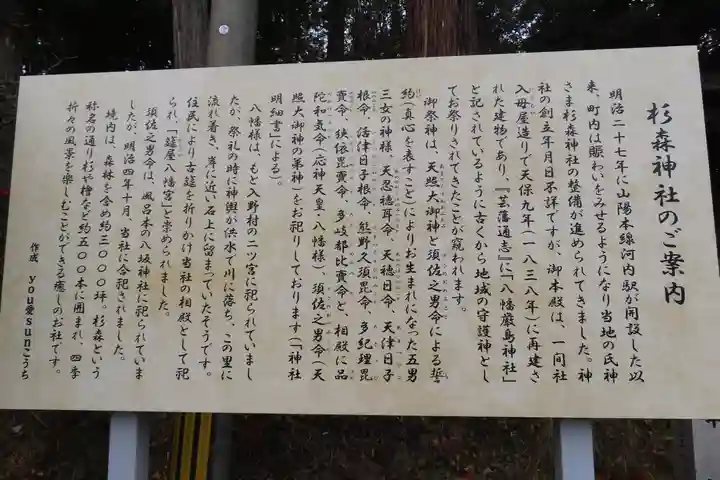 杉森神社のご案内
明治二十七年に山陽本線河内駅が開設した以
来、町内は賑わいをみせるようになり当地の氏神
さま杉森神社の整備が進められてきました。神
社の創立年月日不詳ですが、御本殿は、一間社
入母屋造りで天保九年(一八三八年)に再建さ
れた建物であり、『芸藩通志』に「八幡厳島神社」
と記されているように古くから地域の守護神とし
てお祭りされてきたことが窺われます。
御祭神は、天照大御神と須佐之男命による誓
約(真心を表すこと)によりお生まれになった五男
三女の神様、天忍穂耳命、天穂日命、天津日子
根命、活津日子根命、熊野久須毘命、多紀理毘
賣命、狭依毘賣命、多岐都比賣命と、相殿に品
陀和気命(応神天皇・八幡様)、須佐之男命(天
照大御神の弟神)をお祀りしております(『神社
明細書』による)。
八幡様は、もと入野村の二ツ宮に祀られていまし
たが、祭礼の時に神輿が洪水で川に落ち、この里に
流れ着き、岸に近い石上に留まっていたそうです。
住民により古莚を折りかけ当社の相殿として祀
られ、「莚屋八幡宮」と崇められました。
須佐之男命は、風呂本の八坂神社に祀られていま
したが、明治四年十月、当社に合祀されました。
境内は、森林を含め約三〇〇〇坪。杉森という
称名の通り杉や檜など約五〇〇本に囲まれ、四季
折々の風景を楽しむことができる癒しのお社です。
作成 you愛sunこうち